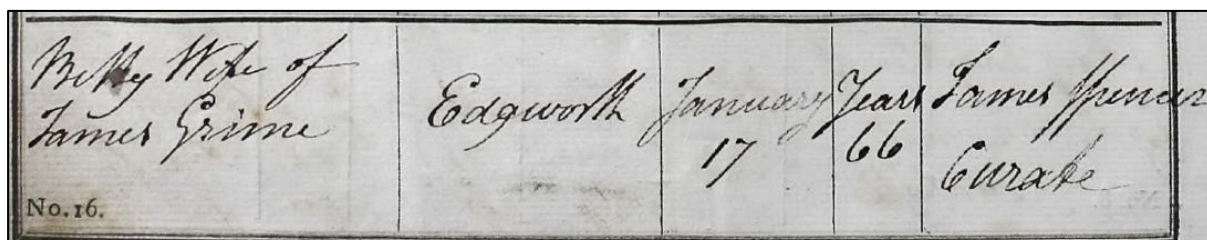 Betty Wife of
James Grime
No.16.
Edgworth
January
17
Years
66
James Spencer
Curate